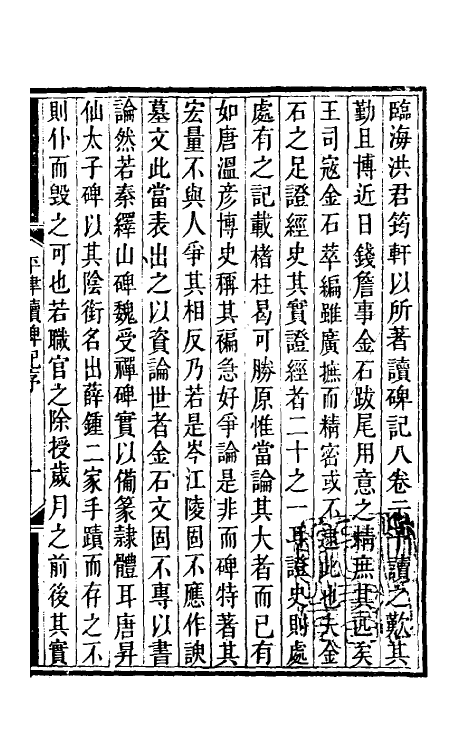 臨海洪君筠軒以所著讀碑記八卷示讀之歎其
勤且博近日錢詹事金石跋尾用意之精無其匹矣
王司寇金石萃編雖廣摭而精密或不逮此也夫金
石之足證經史其實證經者二十之一耳證史則處
處有之記載楮柱曷可勝原惟當論其大者而已有
如唐溫彥博史稱其褊急好爭論是非而碑特著其
宏量不與人爭其相反乃若是岑江陵固不應作諛
墓文此當表出之以資論世者金石文固不專以書
論然若秦繹山碑魏受禪碑實以備篆隸體耳唐昇
仙太子碑以其陰銜名出薛鍾二家手蹟而存之不
則仆而毀之可也若職官之除授歲月之前後其實
平津讀碑記序
一